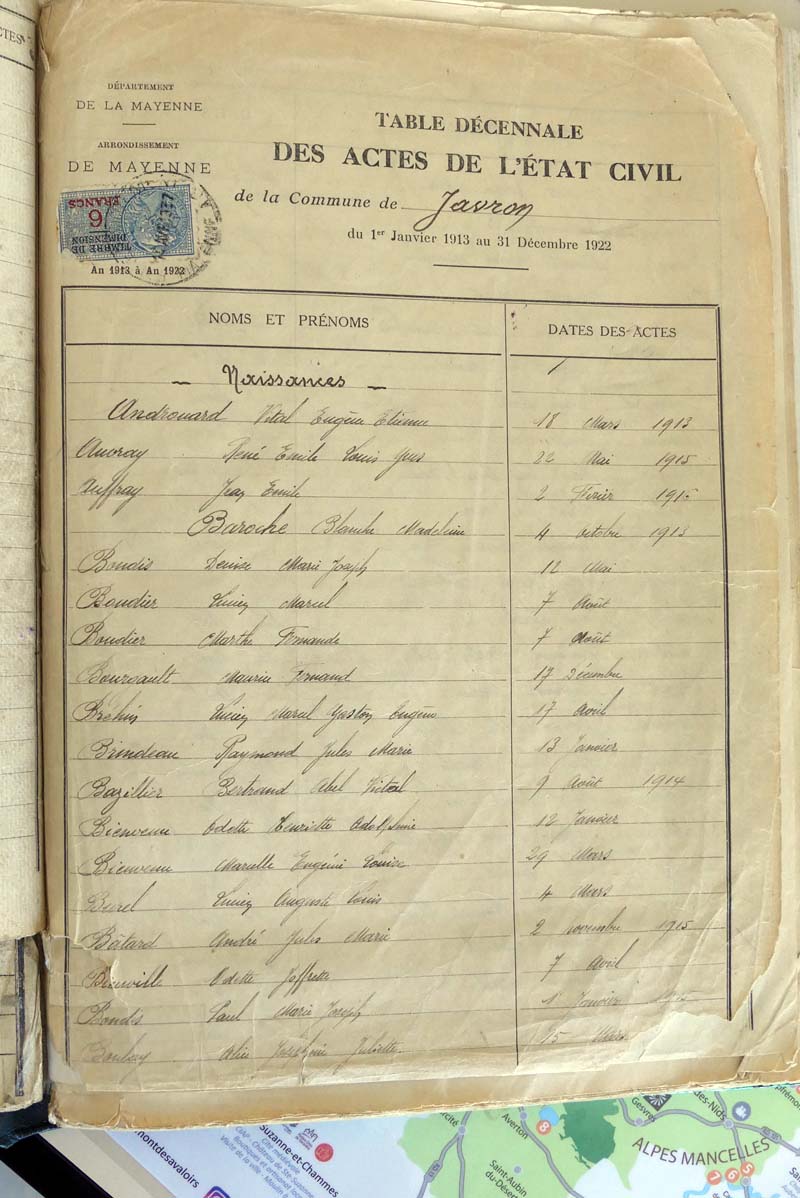 CTES
DÉPARTEMENT
DE LA MAYENNE
ARRONDISSEMENT
DE MAYENNE
TIMBRE DE
DIMENSION
6
FRANCS
An 1913 à An 1922
TABLE DÉCENNALE
DES ACTES DE L'ÉTAT CIVIL
de la Commune de Javron
du 1er Janvier 1913 au 31 Décembre 1922
NOMS ET PRÉNOMS DATES DES ACTES
Naissances
Androuard Vital Eugène Etienne 18 Mars 1913
Auvray René Emile Louis Yves 22 Mai 1915
Auffray Jean Emile 2 Février 1915
Baroche Blanche Madeleine 4 octobre 1913
Bondis Denise Marie Joseph 12 Mai
Boudier Lucien Marcel 7 Août
Boudier Marthe Fernande 7 Août
Boursault Maurice Fernand 17 Décembre
Bréhin Lucien Marcel Gaston Eugène 17 Avril
Brindeau Raymond Jules Marie 13 Janvier
Bazillier Bertrand Abel Vital 9 Août 1914
Bienveau Odette Henriette 12 Janvier
Bienveau Marcelle Eugénie Louise 29 Mars
Burel Lucien Auguste Louis 4 Mars
Bâtard André Jules Marie 2 novembre 1915
Odette Joffrette 7 Avril
Bondis Paul Marie Joseph 1 Janvier 1915
Boulay Alice Joséphine Juliette 15 Mars
ontdesavaloirs
Suzanne-et-Chammes
Cité médiévale
Averton
Saint-Aubin
du-Désert
Gesvres
des-Nids
ALPES MANCELLES
8
6
5
1